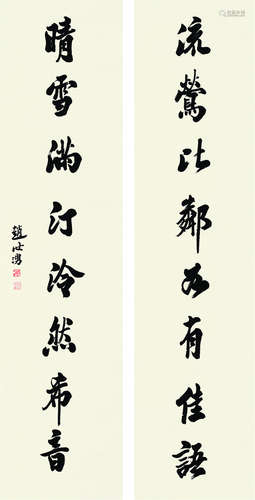 流鶯比鄰如有佳語
晴雪滿汀泠然希音
趙世